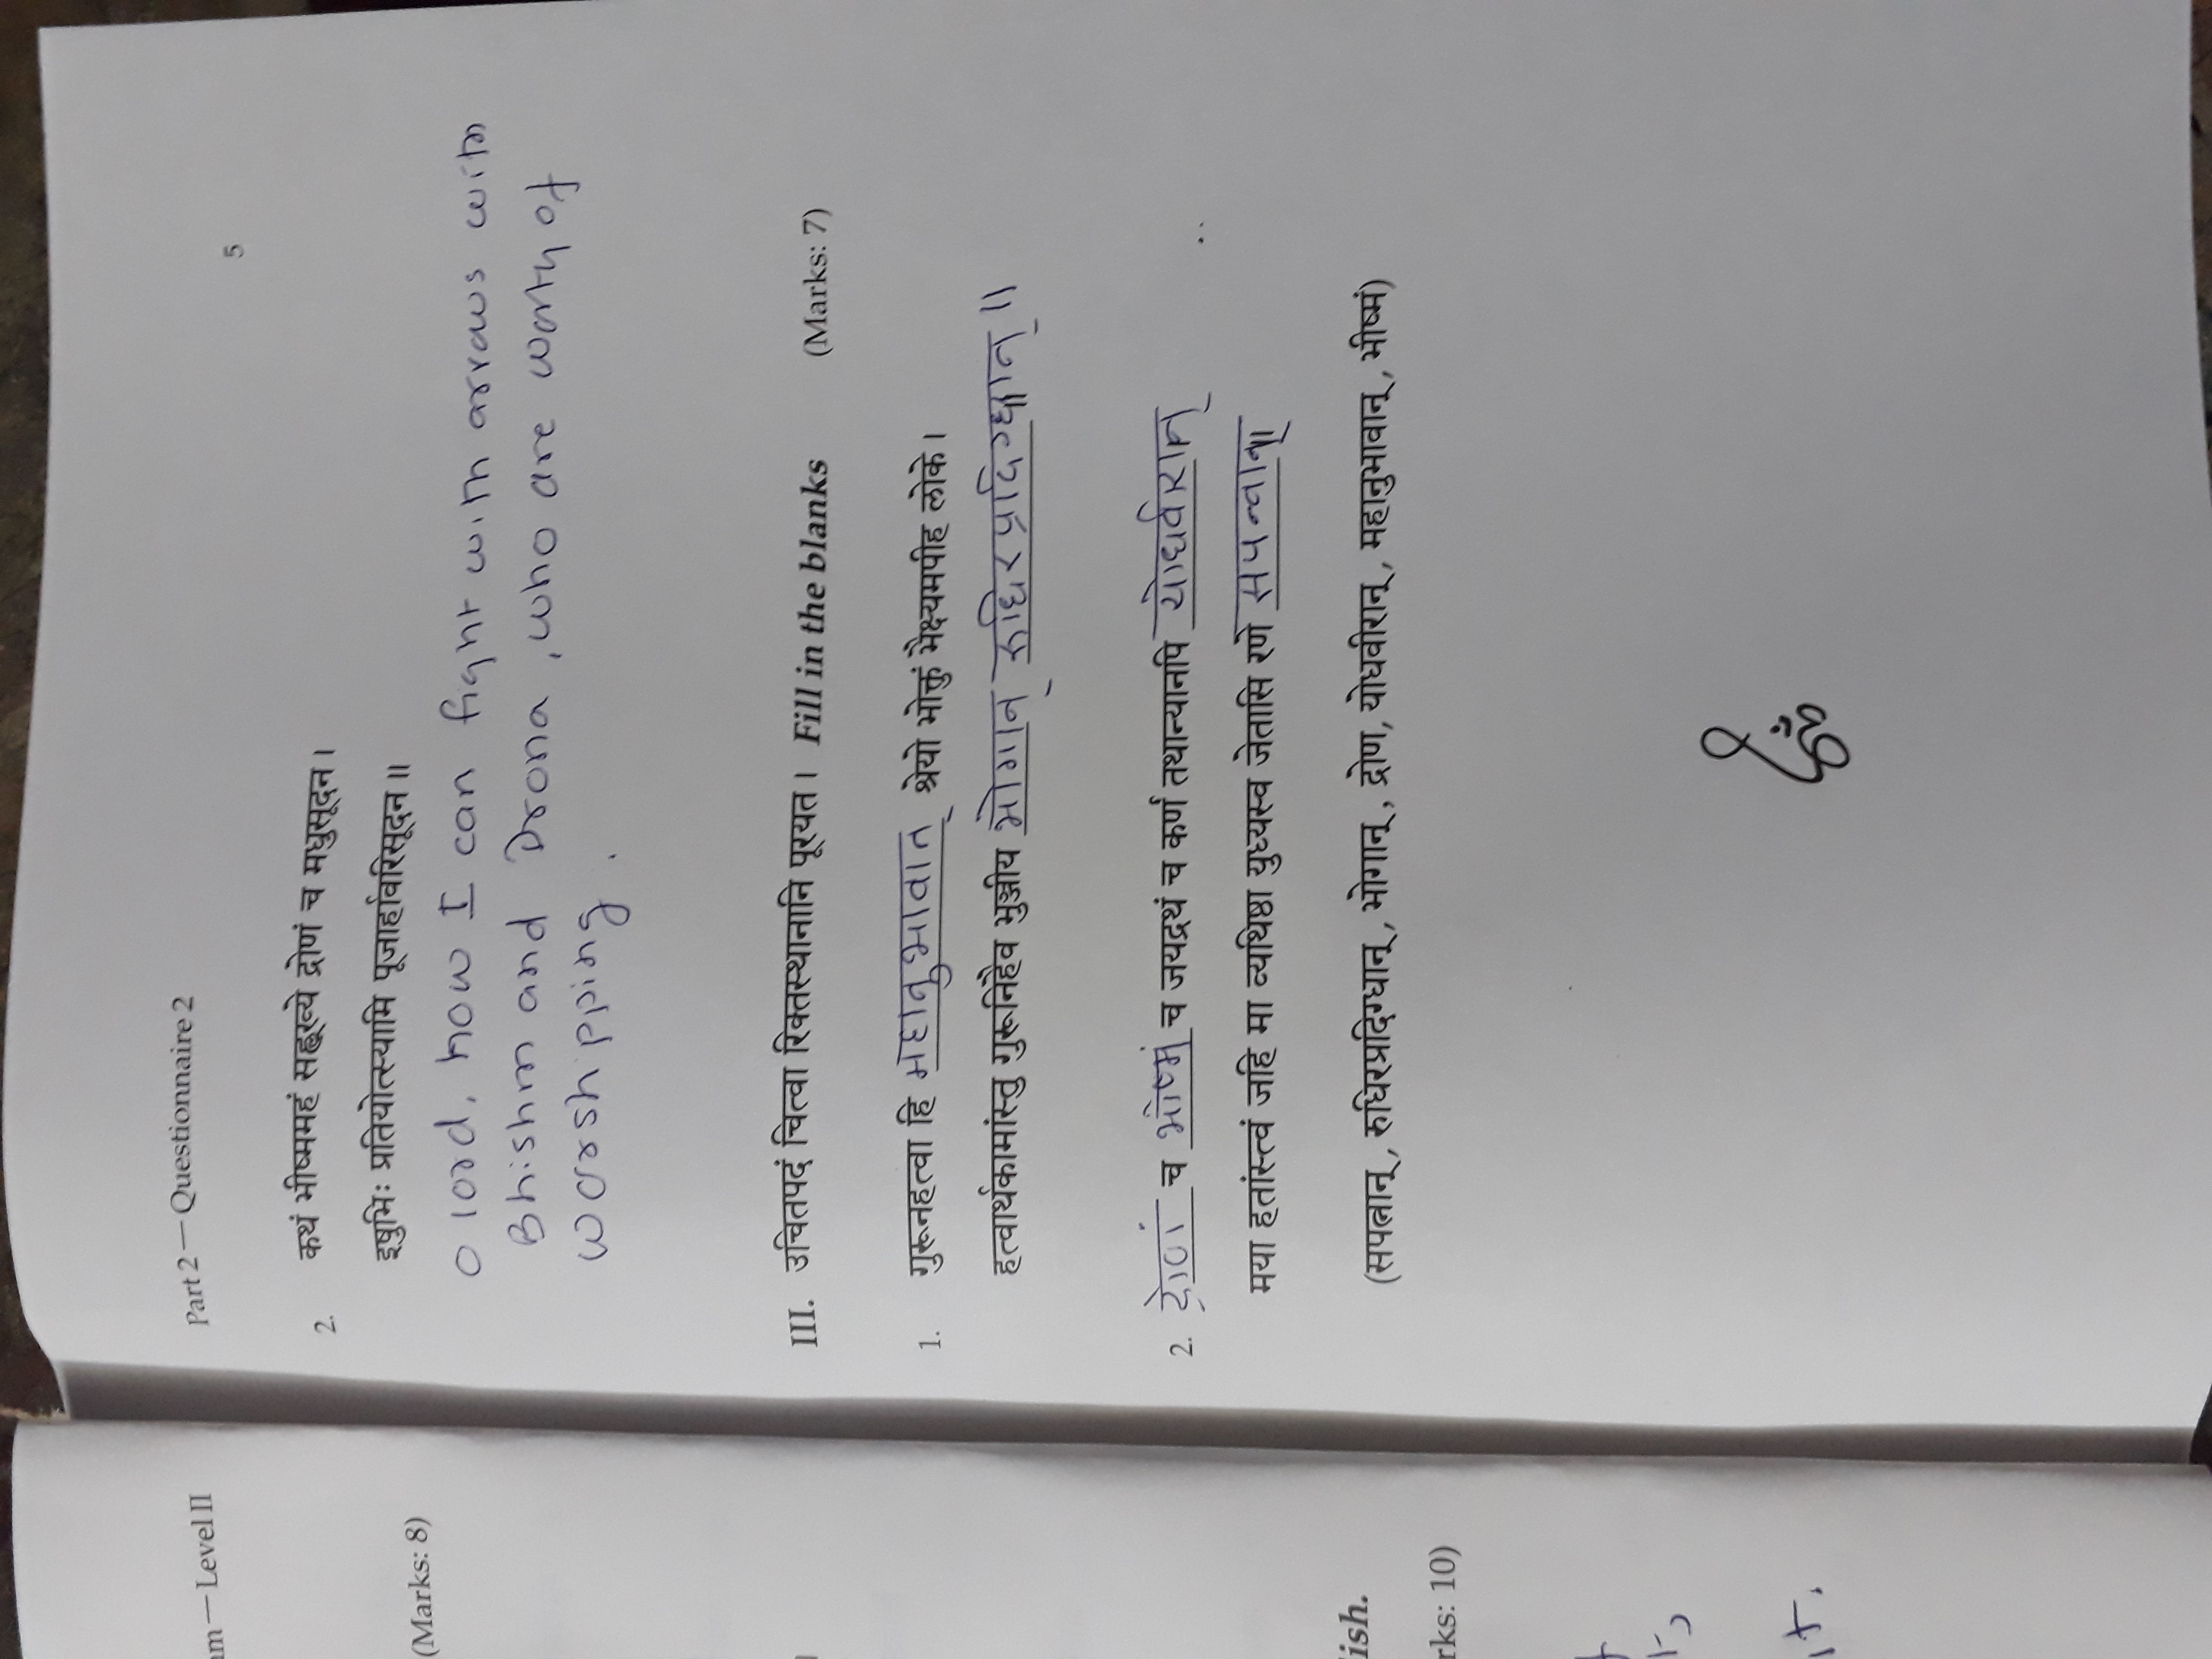 am — Level II
Part 2 — Questionnaire 2
5
(Marks: 8)
2. कथं भीष्ममहं सङ्ख्ये द्रोणं च मधुसूदन ।
इषुभिः प्रतियोत्स्यामि पूजार्हावरिसूदन ॥
O lord, how I can fight with arrows with
Bhishm and Drona, who are worty of
worshipping.
III. उचितपदं चित्वा रिक्तस्थानानि पूरयत । Fill in the blanks (Marks: 7)
1. गुरूनहत्वा हि महानुभावान् श्रेयो भोक्तुं भैक्ष्यमपीह लोके ।
हत्वार्थकामांस्तु गुरूनिहैव भुञ्जीय भोगान् रुधिरप्रदिग्धान् ॥
2. द्रोणं च भीष्मं च जयद्रथं च कर्णं तथान्यानपि योधवीरान्
मया हतांस्त्वं जहि मा व्यथिष्ठा युध्यस्व जेतासि रणे सपत्नान्॥
lish.
(सपत्नान् , रुधिरप्रदिग्धान् , भोगान् , द्रोण, योधवीरान् , महानुभावान् , भीष्मं)
rks: 10)
ॐ